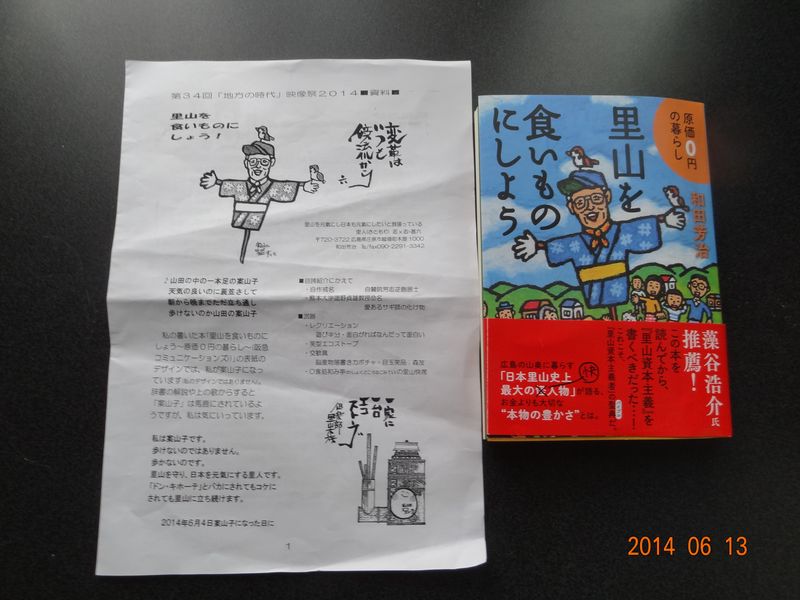 第34回「地方の時代」映像祭2014■資料■
里山を
食いものに
しよう!
変革は
いつも
里山を元気にし日本も元気にしたいと頑張っている
〒720-3722
和田芳治 Tel/fax090-2291-3342
♪山田の中の一本足の案山子
天気の良いのに蓑笠きして
朝から晩までただ立ち通し
歩けないのか山田の案山子
私の書いた本「里山を食いものに
しよう~原価0円の暮らし~(阪急
コミュニケーションズ)」の表紙の
デザインでは、私が案山子になっ
ています(私のデザインではありません)。
辞書の解説や上の歌からすると
「案山子」は馬鹿にされているよ
うですが、私は気にいっています。
私は案山子です。
歩けないのではありません。
歩かないのです。
里山を守り、日本を元気にする里人です。
「ドン・キホーテ」とバカにされてもコケに
されても里山に立ち続けます。
2014年6月4日案山子になった日に
■自己紹介にかえて
■武器
・レクリエーション
遊び半分・面白がればなんだって面白い
・笑型エコストーブ
・交歓具
一家に
一台
エコ
ストーブ
1
原価0円
の暮らし
里山を
食いもの
にしよう
和田芳治
藻谷浩介氏
推薦!
この本を
読んでから、
『里山資本主義』を
書くべきだった…!
これこそ、
「里山資本主義者」の聖典だ。
広島の山奥に暮らす
「日本里山史上
最大の人物」が語る、
お金よりも大切な
“本物の豊かさ”とは。
2014 06 13